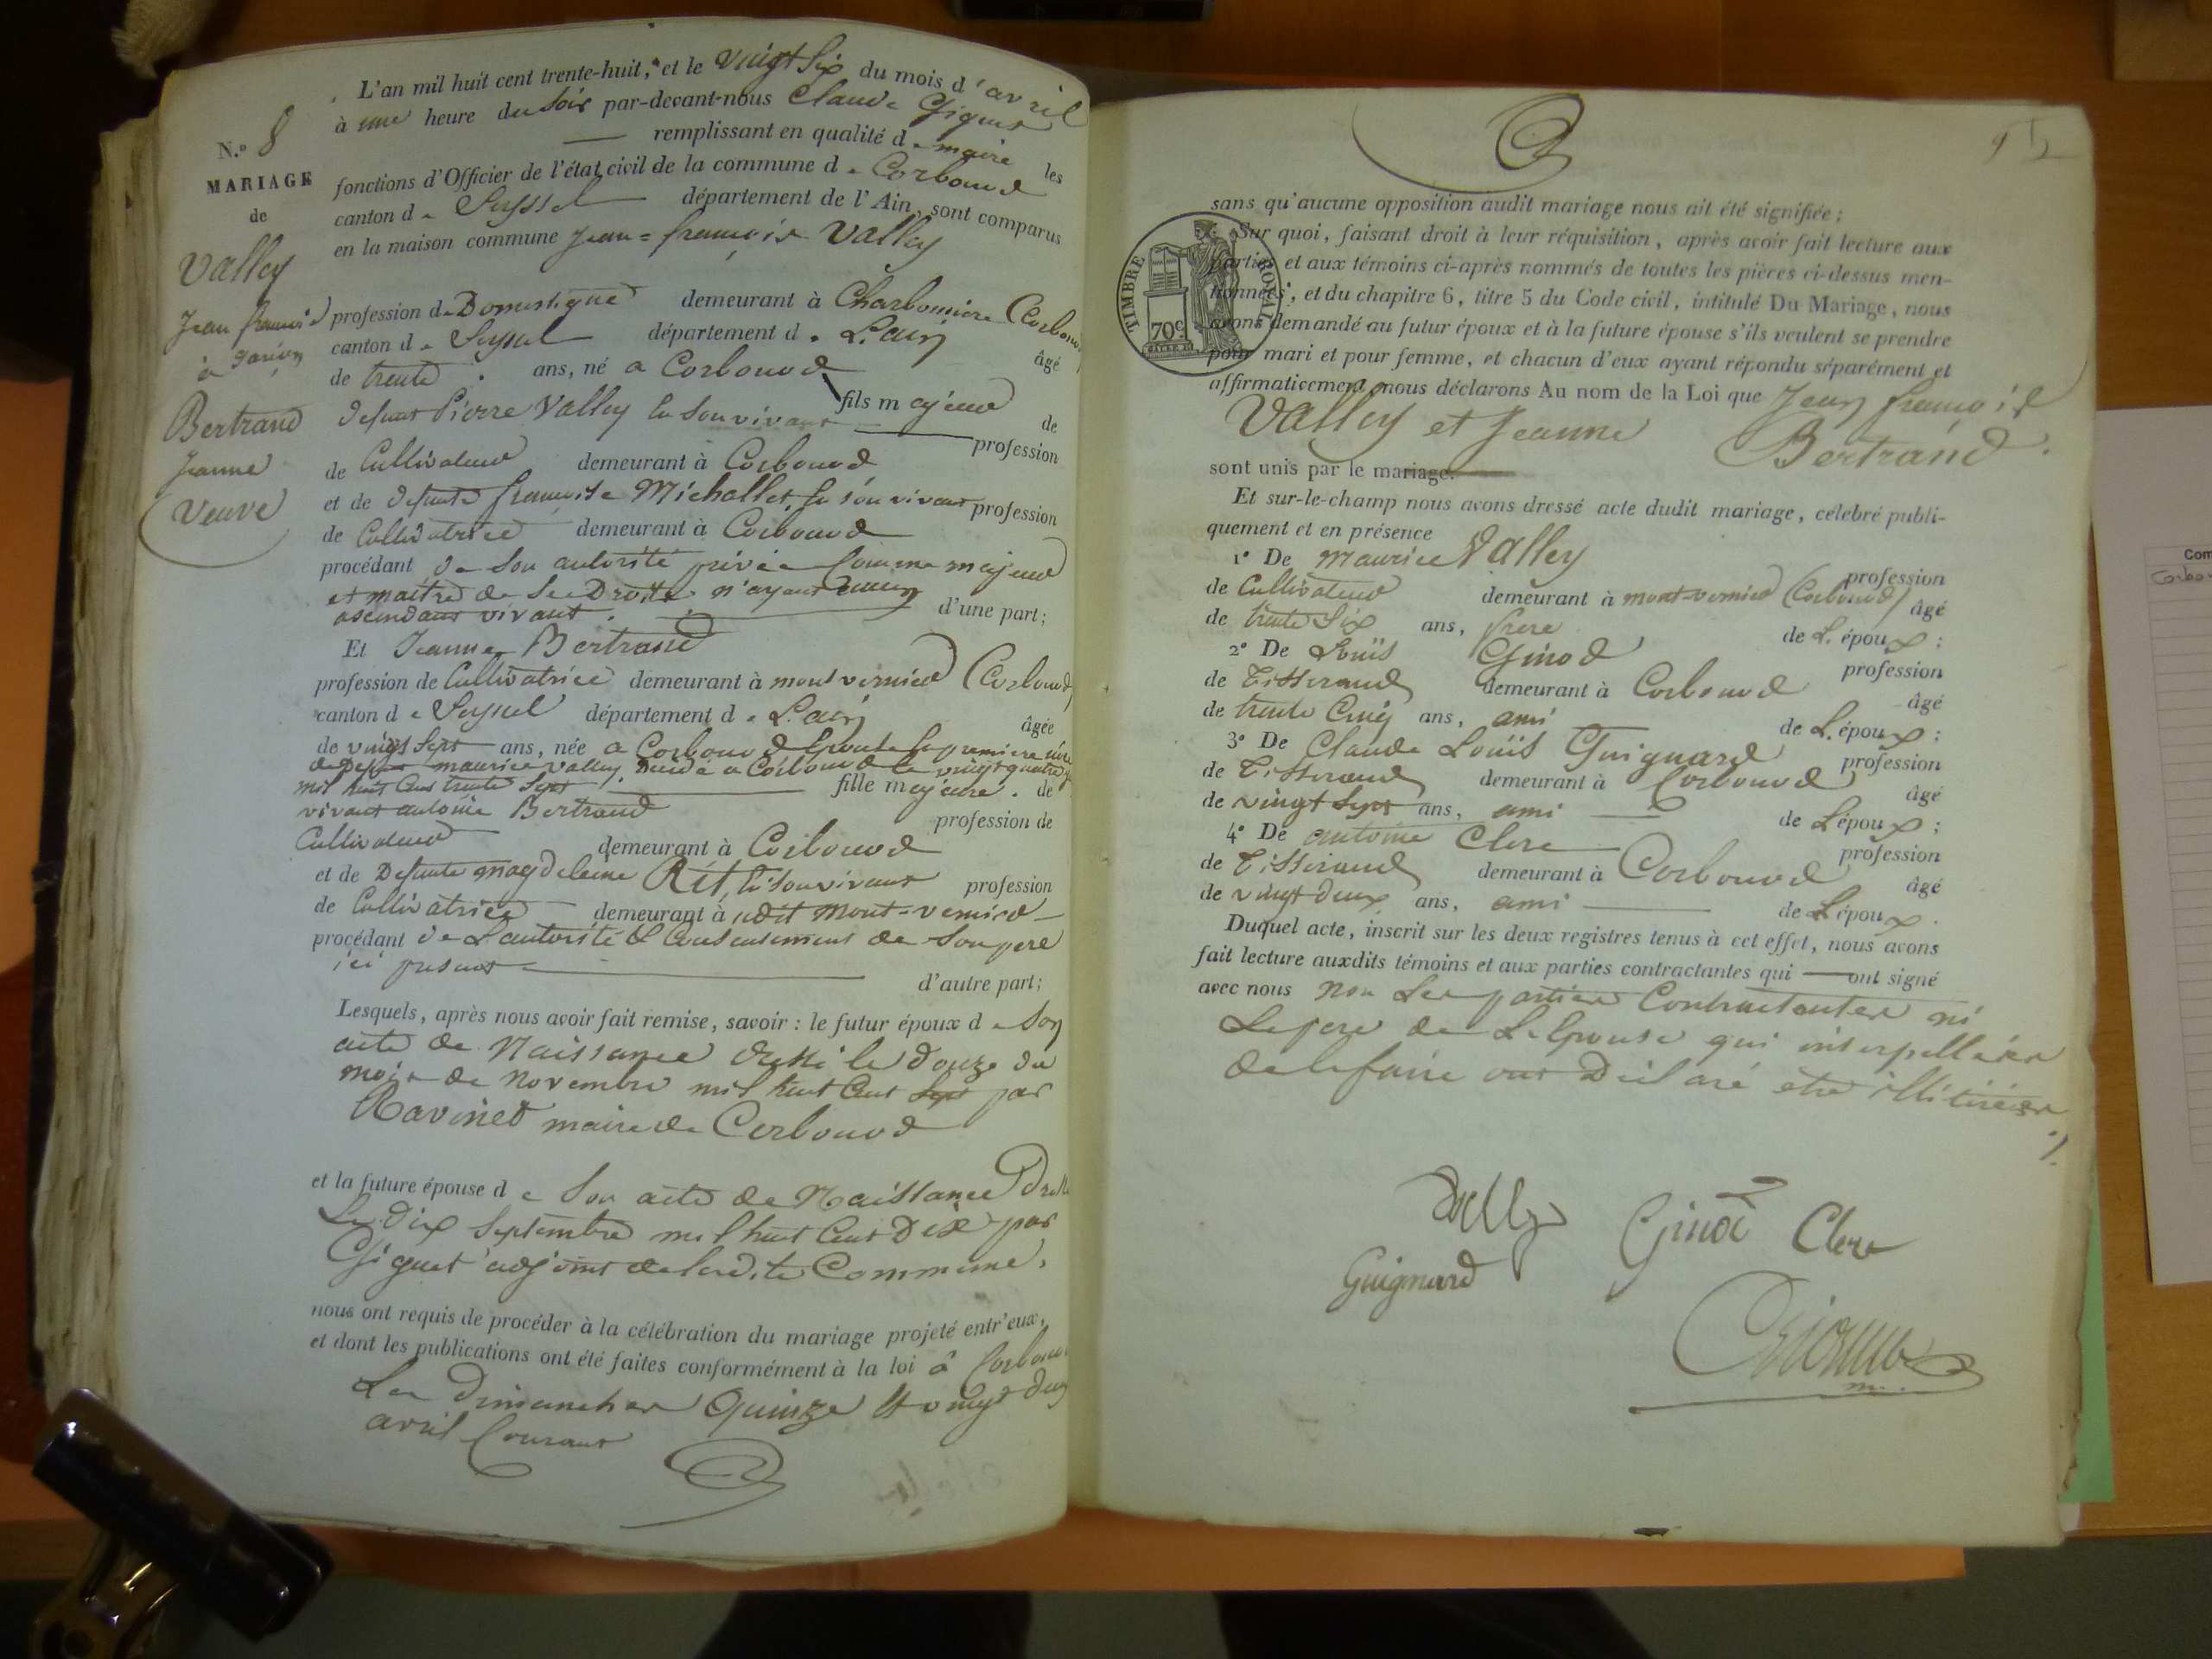 L'an mil huit cent trente-huit, et le vingt six du mois d'avril
à une heure du soir par-devant-nous Claude Giguet
remplissant en qualité de maire les
fonctions d'Officier de l'état civil de la commune de Corbonod
canton de Seyssel département de l'Ain, sont comparus
en la maison commune Jean=françois Valley
N.º 8
MARIAGE
de
Valley
Jean françois
à
Bertrand
Jeanne
Veuve
profession de Domestique demeurant à Charbonniere (Corbonod
canton de Seyssel département de L'ain âgé
de trente ans, né a Corbonod
fils majeur de
defunt Pierre Valley en son vivant profession
de Cultivateur demeurant à Corbonod
et de defunte françoise Michallet, en son vivant profession
de Cultivatrice demeurant à Corbonod
procédant de son autorité privée comme majeur
et maitre de ses Droits n'ayant aucun
ascendant vivant. d'une part;
Et Jeanne Bertrand
profession de Cultivatrice demeurant à mont vernier (Corbonod)
canton de Seyssel département de L'ain âgée
de vingt sept ans, née a Corbonod
de Defunt maurice Valley, décédé a Corbonod le vingt quatre
mil huit Cent trente Sept fille majeure de
vivant antoine Bertrand profession de
Cultivateur demeurant à Corbonod
et de Defunte magdeleine Rét, en son vivant profession
de Cultivatrice demeurant à udit Mont-vernier
procédant de L'autorité & Consentement de Son pere
ici present d'autre part;
Lesquels, après nous avoir fait remise, savoir: le futur époux de son
acte de Naissance dressé le douze du
mois de novembre mil huit Cent Sept par
Ravinet maire de Corbonod
et la future épouse de Son acte de Naissance Dressé
Le dix Septembre mil huit Cent Dix par
Giguet adjoint de ladite Commune.
nous ont requis de procéder à la célébration du mariage projeté entr'eux,
et dont les publications ont été faites conformément à la loi à Corbonod
Les Dimanches Quinze & vingt deux
avril Courant
sans qu'aucune opposition audit mariage nous ait été signifiée;
Sur quoi, faisant droit à leur réquisition, après avoir fait lecture aux
parties et aux témoins ci-après nommés de toutes les pièces ci-dessus men-
tionnées, et du chapitre 6, titre 5 du Code civil, intitulé Du Mariage, nous
avons demandé au futur époux et à la future épouse s'ils veulent se prendre
pour mari et pour femme, et chacun d'eux ayant répondu séparément et
affirmativement, nous déclarons Au nom de la Loi que Jean françois
Valley et Jeanne Bertrand.
sont unis par le mariage.
Et sur-le-champ nous avons dressé acte dudit mariage, célebré publi-
quement et en présence
1º De Maurice Valley profession
de Cultivateur demeurant à mont-vernier (Corbonod) âgé
de trente Six ans, frere de L'époux;
2º De Louis Ginod profession
de Tisserand demeurant à Corbonod âgé
de trente Cinq ans, ami de L'époux;
3º De Claude Louis Guignard profession
de Tisserand demeurant à Corbonod âgé
de vingt Sept ans, ami de L'époux;
4º De antoine Clerc profession
de Tisserand demeurant à Corbonod âgé
de vingt deux ans, ami de L'époux.
Duquel acte, inscrit sur les deux registres tenus à cet effet, nous avons
fait lecture auxdits témoins et aux parties contractantes qui ont signé
avec nous non Les parties Contractantes ni
Le pere de L'Epouse qui interpellées
de le faire ont Déclaré etre illitérées
TIMBRE ROYAL
70c
Valley Ginod Clerc
Guignard